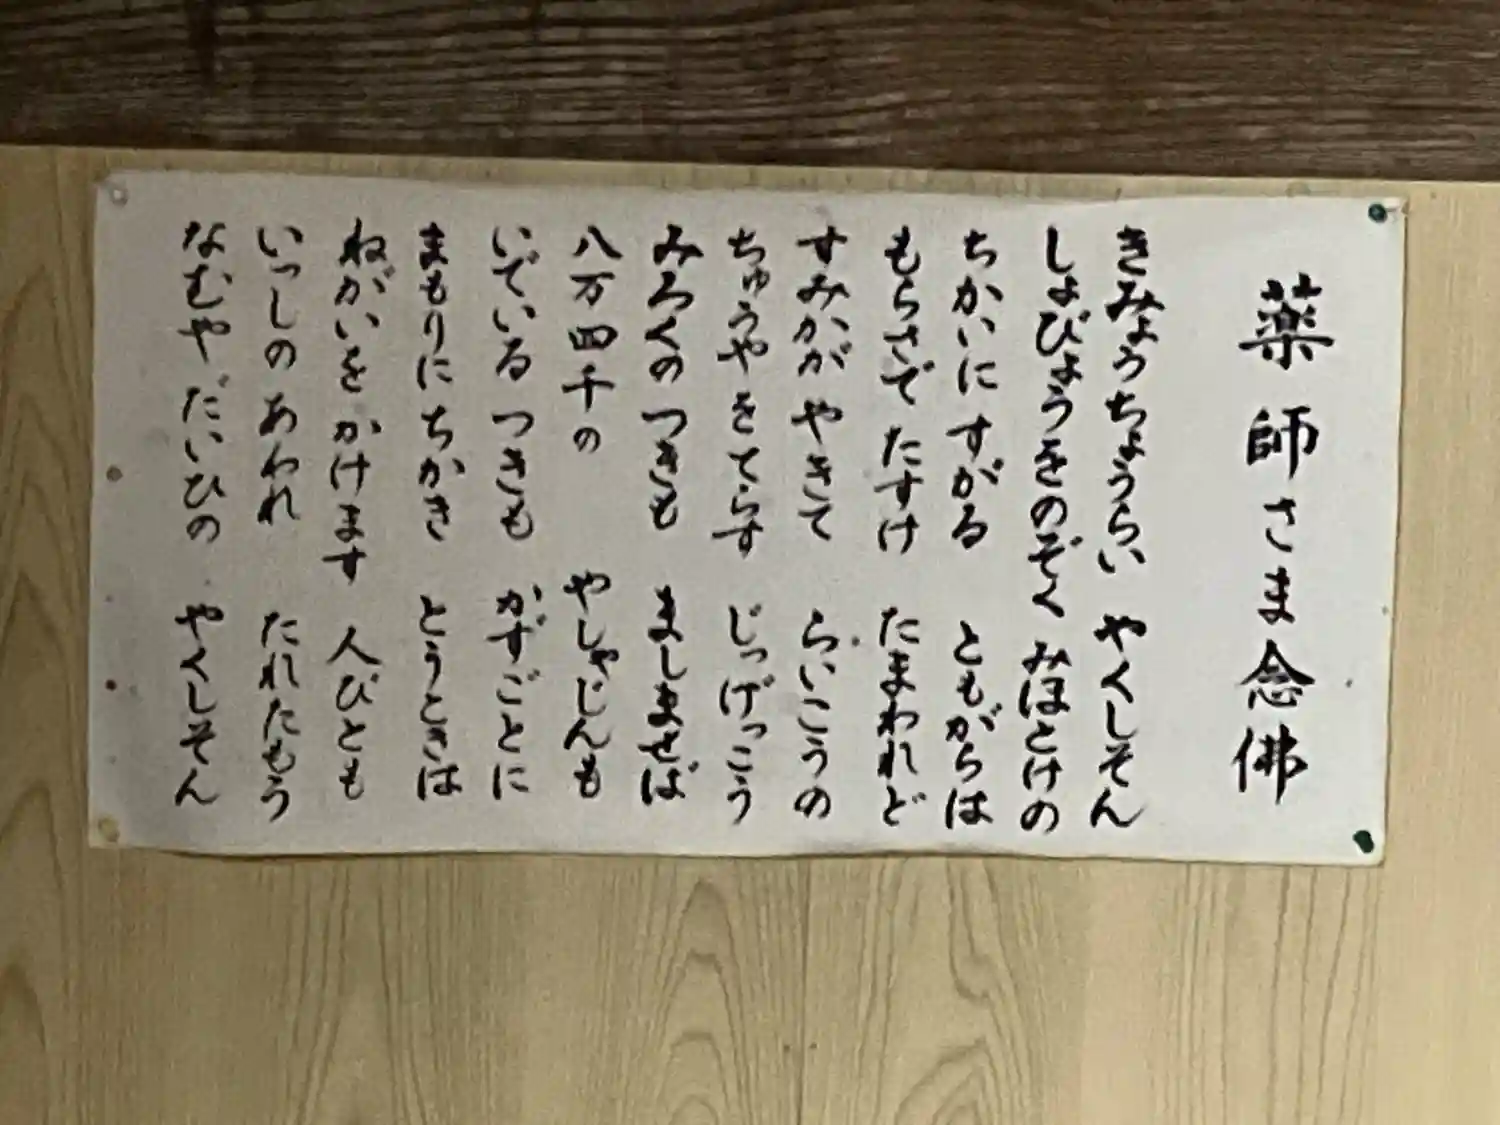 薬師さま念佛
きみょうちょうらい やくしそん
しょびょうをのぞく みほとけの
ちかいにすがる ともがらは
もらさでたすけ たまわれど
すみかがやきて らいこうの
ちゅうやをてらす じっげっこう
みろくのつきも ましませば
八万四千の やしゃじんも
いでいるつきも かずごとに
まもりにちかき とうときは
ねがいをかけます 人びとも
いっしのあわれ たれたもう
なむやだいひの やくしそん